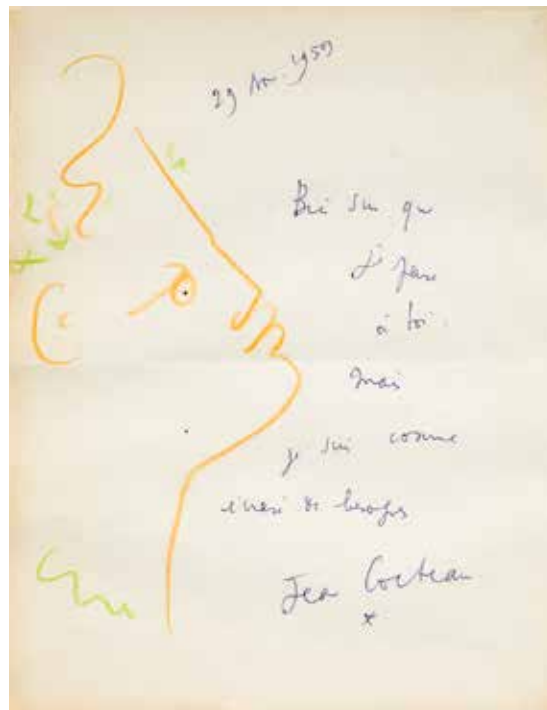 29 Nov. 1959
Bien sûr que
je pense
à toi.
mais
je suis comme
écrasé de besognes
Jean Cocteau